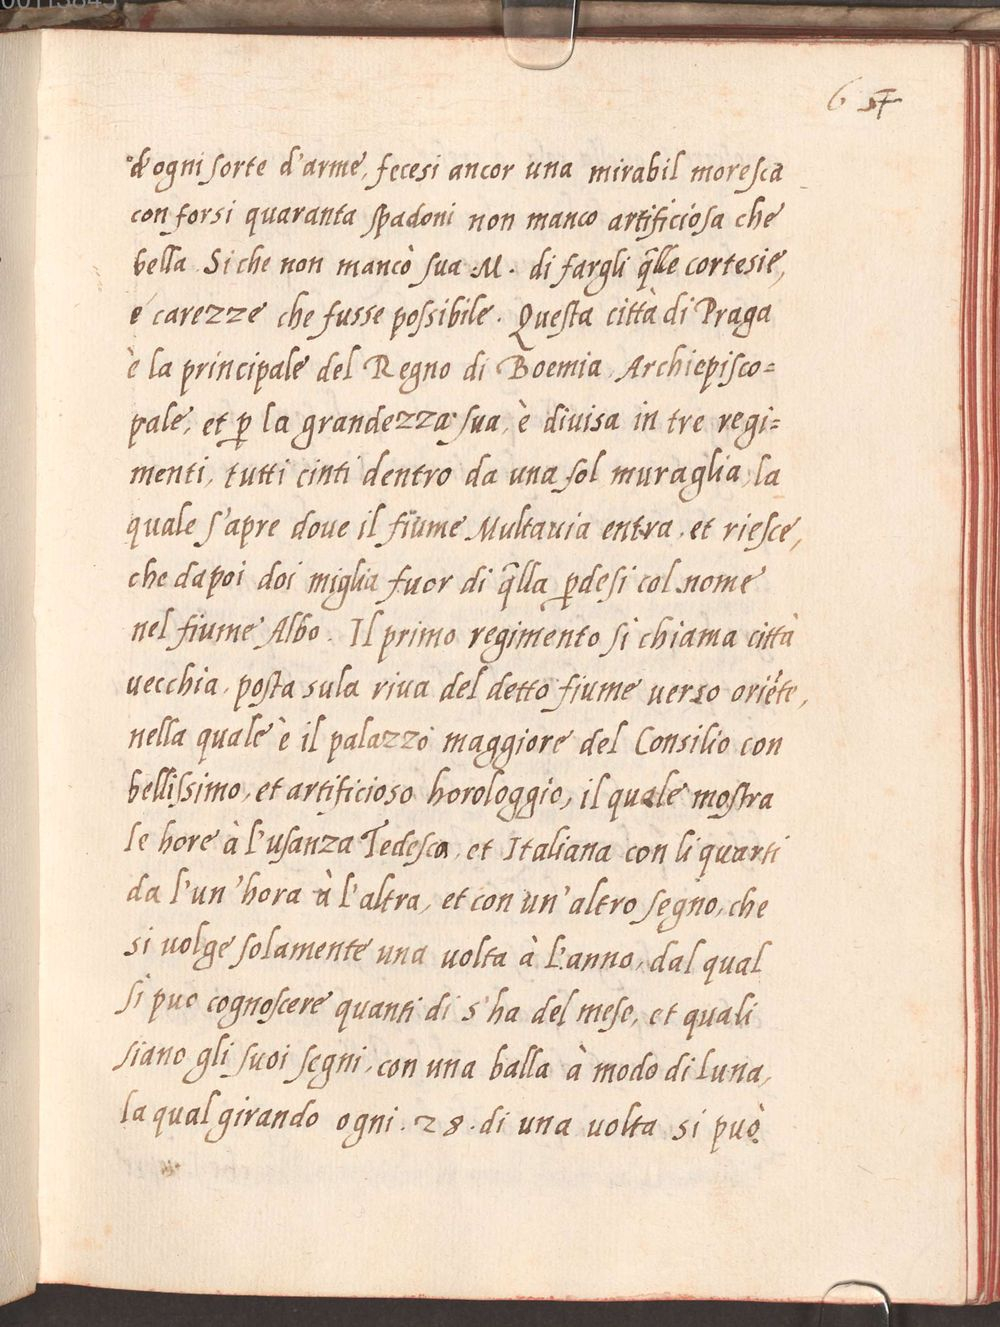 6 57
d'ogni sorte d'arme, fecesi ancor una mirabil moresca
con forsi quaranta spadoni non manco artificiosa che
bella. Si che non mancò sua .M. di fargli q̃lle cortesie,
e carezze che fusse possibile. Questa città di Praga
è la principale del Regno di Boemia, Archiepisco=
pale, et ꝑ la grandezza sua, è diuisa in tre regi=
menti, tutti cinti dentro da una sol muraglia, la
quale s'apre doue il fiume Multauia entra, et riesce,
che dapoi doi miglia fuor di q̃lla ꝑdesi col nome
nel fiume Albo. Il primo regimento si chiama città
uecchia, posta sula riua del detto fiume uerso oriẽte,
nella quale è il palazzo maggiore del Consilio con
bellissimo, et artificioso horologgio, il quale mostra
le hore à l'usanza Tedesca, et Italiana con li quarti
da l'un'hora à l'altra, et con un'altro segno, che
si uolge solamente una uolta à l'anno, dal qual
si puo cognoscere quanti di s'ha del mese, et quali
siano gli suoi segni, con una balla à modo di luna,
la qual girando ogni .28. di una uolta si può